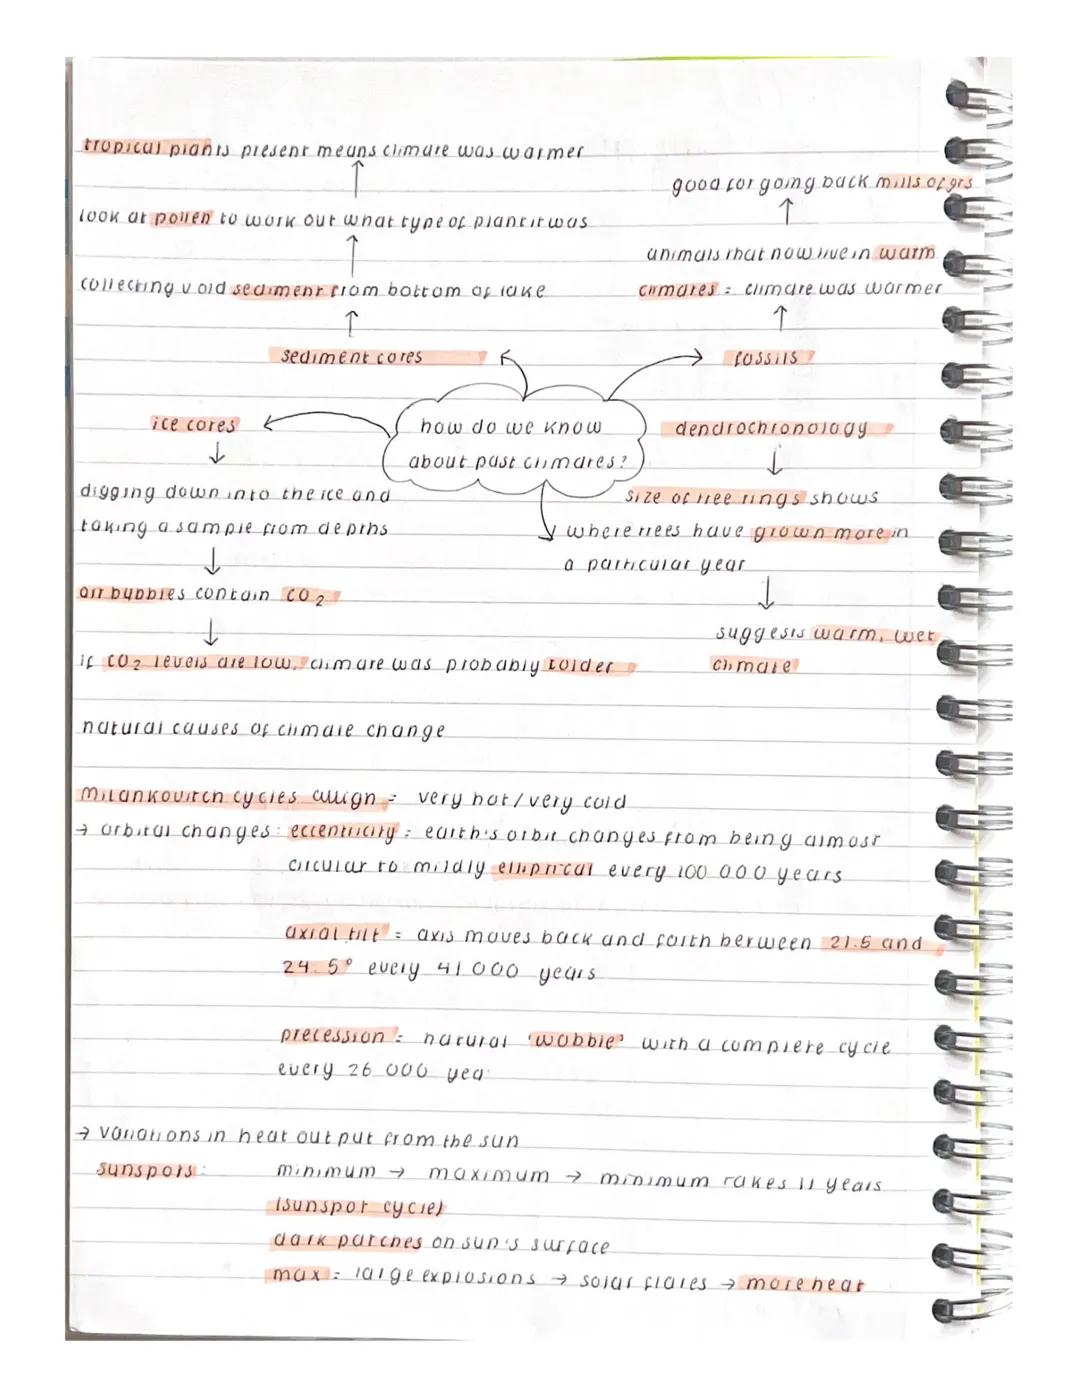 tropical plants present means climate was warmer
↑
look at pollen to work out what type of plant it was
↑
collecting v old sediment from bottom of lake
↑
sediment cores
good for going back mills of yrs
↑
animals that now live in warm
climates = climate was warmer
↑
fossils
how do we know
about past climates?
ice cores
↓
digging down into the ice and
taking a sample from depths
↓
air bubbles contain CO2
↓
if CO2 levels are low, climate was probably colder
dendrochronology
↓
size of tree rings shows
where trees have grown more in
a particular year
↓
suggests warm, wet
climate
natural causes of climate change
milankovitch cycles allign = very hot/very cold
→ orbital changes: eccentricity = earth's orbit changes from being almost
circular to mildly elliptical every 100 000 years
axial tilt = axis moves back and forth between 21.5 and
24.5° every 41 000 years
precession = natural 'wobble' with a complete cycle
every 26 000 yea
→ variations in heat output from the sun
sunspots: minimum → maximum → minimum takes 11 years
(sunspot cycle)
dark patches on sun's surface
max = large explosions → solar flares → more heat